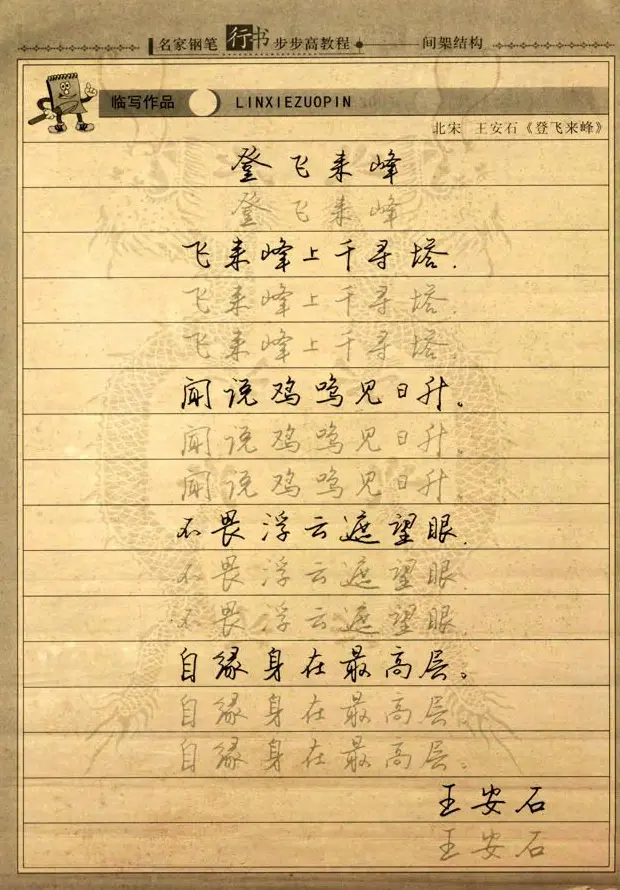 名家钢笔行书步步高教程 间架结构
临写作品 LINXIEZUOPIN
北宋 王安石《登飞来峰》
登飞来峰
登飞来峰
飞来峰上千寻塔.
飞来峰上千寻塔.
飞来峰上千寻塔.
闻说鸡鸣见日升。
闻说鸡鸣见日升.
闻说鸡鸣见日升.
不畏浮云遮望眼.
不畏浮云遮望眼.
不畏浮云遮望眼.
自缘身在最高层。
自缘身在最高层.
自缘身在最高层。
王安石
王安石